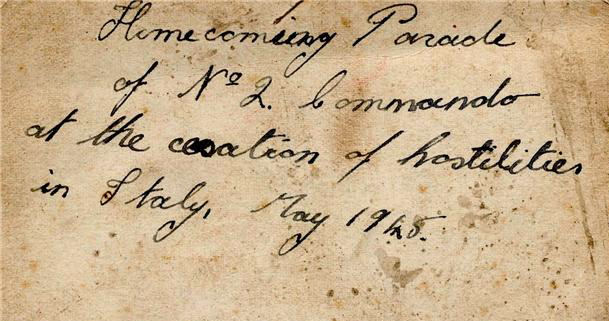 Homecoming Parade
of Nº 2. Commando
at the cessation of hostilities
in Italy, May 1945.